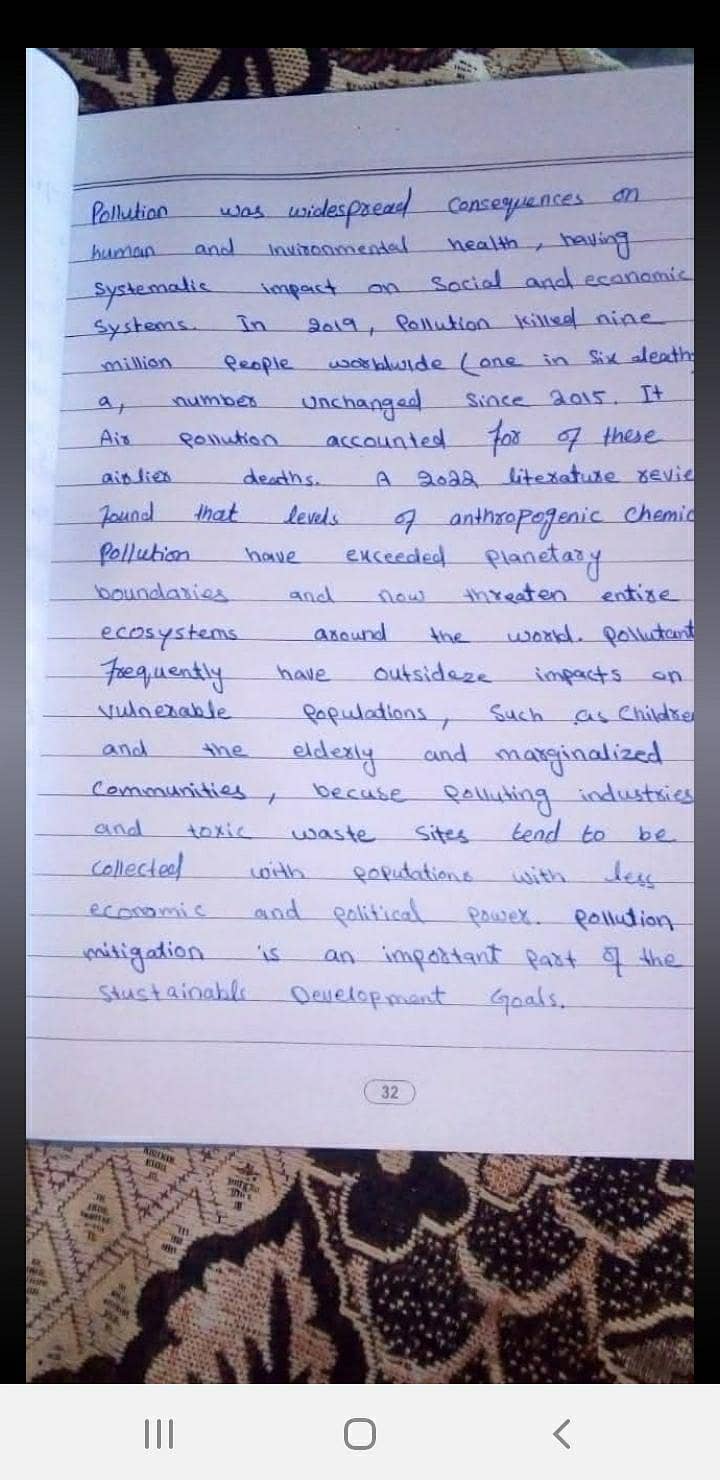 Pollution was widespread consequences on
human and invironmental health, having
systematic impact on social and economic
systems. In 2019, Pollution killed nine
million people worldwide (one in six death
a, number unchanged since 2015. It
Air pollution accounted for of these
deaths. A 2022 literature revie
found that levels of anthropogenic chemic
Pollution have exceeded planetary
boundaries and now threaten entire
ecosystems around the world. pollutant
frequently have outsideze impacts on
vulnerable populations, such as childre
and the elderly and marginalized
communities, becuse polluting industries
and toxic waste sites tend to be
collected with populations with less
economic and political power. pollution
mitigation is an important part of the
stustainable Development Goals.
32